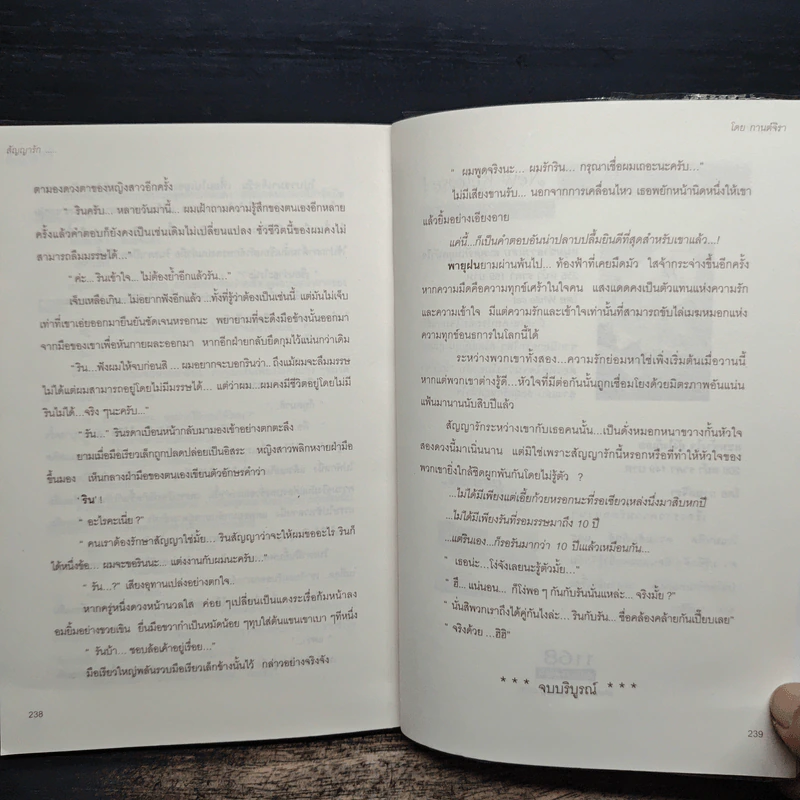 สัญญารัก ....
ตามองดวงตาของหญิงสาวอีกครั้ง
“ รินครับ... หลายวันมานี้... ผมเฝ้าถามความรู้สึกของตนเองอีกหลาย
ครั้งแล้วคำตอบก็ยังคงเป็นเช่นเดิมไม่เปลี่ยนแปลง ชั่วชีวิตนี้ของผมคงไม่
สามารถลืมมรรษได้...”
“ ค่ะ... รินเข้าใจ... ไม่ต้องย้ำอีกแล้วรัน...”
เจ็บเหลือเกิน...ไม่อยากฟังอีกแล้ว...ทั้งที่รู้ว่าต้องเป็นเช่นนี้ แต่มันไม่เจ็บ
เท่าที่เขาเอ่ยออกมายืนยันชัดเจนหรอกนะ พยายามที่จะดึงมือข้างนั้นออกมา
จากมือของเขาเพื่อหันกายผละออกมา หากอีกฝ่ายกลับยึดกุมไว้แน่นกว่าเดิม
“ ริน...ฟังผมให้จบก่อนสิ ... ผมอยากจะบอกรินว่า.. ถึงแม้ผมจะลืมมรรษ
ไม่ได้แต่ผมสามารถอยู่โดยไม่มีมรรษได้ ... แต่ว่าผม...ผมคงมีชีวิตอยู่โดยไม่มี
รินไม่ได้...จริง ๆนะครับ...”
“ รัน...” รินรดาเบือนหน้ากลับมามองเข้าอย่างตกตะลึง
ยามเมื่อมือเรียวเล็กถูกปลดปล่อยเป็นอิสระ หญิงสาวพลิกหงายฝ่ามือ
ขึ้นมอง เห็นกลางฝ่ามือของตนเองเขียนตัวอักษรคำว่า
‘ริน’!
“ อะไรคะเนี่ย ?”
“ คนเราต้องรักษาสัญญาใช่มั้ย... รินสัญญาว่าจะให้ผมขออะไร รินก็
ได้หนึ่งข้อ... ผมจะขอรินนะ... แต่งงานกับผมนะครับ...”
“ รัน...?” เสียงอุทานเปล่งอย่างตกใจ..
หากครู่หนึ่งดวงหน้านวลใส ค่อย ๆเปลี่ยนเป็นแดงระเรื่อก้มหน้าลง
อมยิ้มอย่างขวยเขิน ยื่นมือขวากำเป็นหมัดน้อย ๆทุบใส่ต้นแขนเขาเบา ๆทีหนึ่ง
“ รันบ้า... ชอบล้อเค้าอยู่เรื่อย...”
มือเรียวใหญ่พลันรวบมือเรียวเล็กข้างนั้นไว้ กล่าวอย่างจริงจัง
238
โดย กานต์จิรา
“ ผมพูดจริงนะ... ผมรักริน... กรุณาเชื่อผมเถอะนะครับ...”
ไม่มีเสียงขานรับ... นอกจากการเคลื่อนไหว เธอพยักหน้านิดหนึ่งให้เขา
แล้วยิ้มอย่างเอียงอาย
แค่นี้...ก็เป็นคำตอบอันน่าปลาบปลื้มยินดีที่สุดสำหรับเขาแล้ว...!
พายุฝนยามผ่านพ้นไป... ท้องฟ้าที่เคยมืดมัว ใสจ้ากระจ่างขึ้นอีกครั้ง
หากความมืดคือความทุกข์เศร้าในใจคน แสงแดดคงเป็นตัวแทนแห่งความรัก
และความเข้าใจ มีแต่ความรักและเข้าใจเท่านั้นที่สามารถขับไล่เมฆหมอกแห่ง
ความทุกข์อนธการในโลกนี้ได้
ระหว่างพวกเขาทั้งสอง...ความรักย่อมหาใช่เพิ่งเริ่มต้นเมื่อวานนี้
หากแต่พวกเขาต่างรู้ดี...หัวใจที่มีต่อกันนั้นถูกเชื่อมโยงด้วยมิตรภาพอันแน่น
แฟ้นมานานนับสิบปีแล้ว
สัญญารักระหว่างเขากับเธอคนนั้น...เป็นดั่งหมอกหนาขวางกั้นหัวใจ
สองดวงนี้มาเนิ่นนาน แต่มิใช่เพราะสัญญารักนี้หรอกหรือที่ทำให้หัวใจของ
พวกเขายิ่งใกล้ชิดผูกพันกันโดยไม่รู้ตัว ?
...ไม่ได้มีเพียงแต่เอี้ยก้วยหรอกนะที่รอเซียวเหล่งนึ่งมาสิบหกปี
...ไม่ได้มีเพียงรันที่รอมรรษมาถึง 10 ปี
...แต่รินเอง...ก็รอรันมากว่า 10 ปีแล้วเหมือนกัน...
“ เธอน่ะ... โง่จังเลยนะรู้ตัวมั้ย...”
“ ฮึ... แน่นอน... ก็โง่พอ ๆ กันกับรันนั่นแหล่ะ... จริงมั้ย ?”
“ นั่นสิพวกเราถึงได้คู่กันไงล่ะ... รินกับรัน... ชื่อคล้องคล้ายกันเปี๊ยบเลย”
“ จริงด้วย ...ฮิฮิ”
* * * จบบริบูรณ์ * * *
239